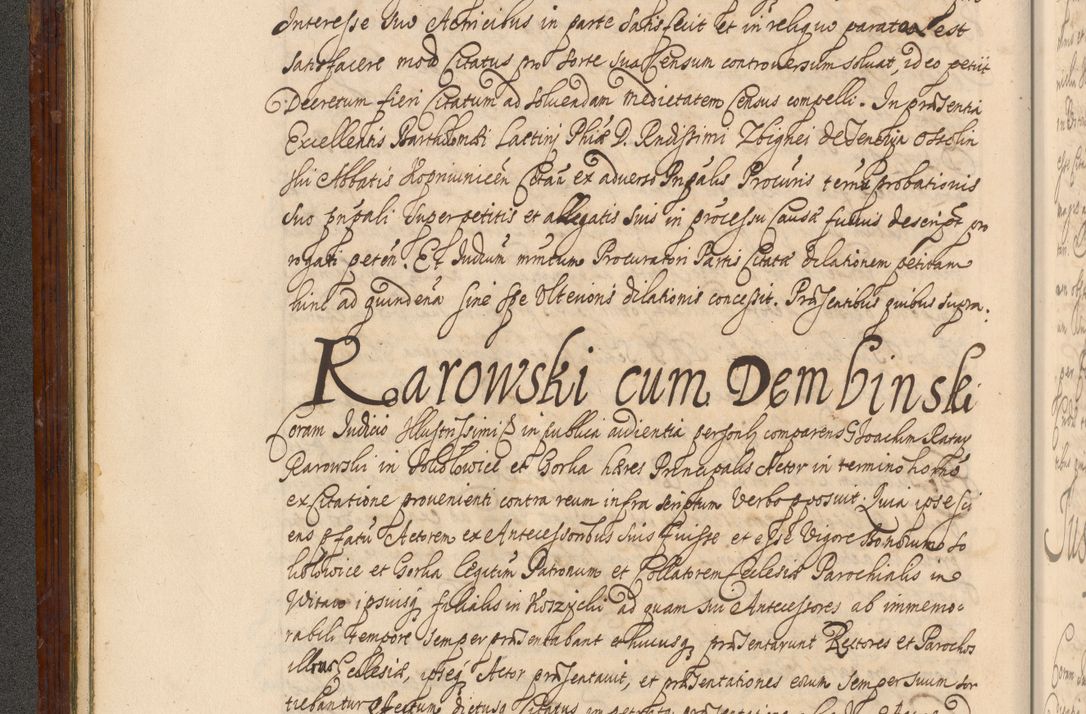 Interesse suo Actricibus in parte satisfecit et in reliquo paratus est
satisfacere modo Citatus pro sorte sua Censum controversum soluat, ideo petiit
Decretum fieri Citatum ad soluendam medietatem Census compelli. In præsentia
Excellentis Bartholomæi Lactinj Phiæ D. Rndissimi Zbignei de Tenczyn Ossolin
ski Abbatis Koprivnicen Citati ex adverso Pnpalis Procuris termi probationis
suo pnpali super petitis et allegatis suis in processu Causæ fusius descript pro
rogati peten. Et Judium Procuratori Partis Citatæ dilationem petitam
hinc ad quindena sine spe Ulterioris dilationis concessit. Præsentibus quibus supra.
Rarowski cum Dembinski
Coram Judicio Illustrissimi P in publica audientia personlr comparens G Joachim Ratay
Rarowski in et Gorka hæres Principalis Actor in termino horno
ex Citatione provenienti contra reum infra scriptum Verbo pposuit: Quia ipse sci
ens pfatu Actorem ex Antecessoribus suis fuisse et esse Vigore Bonorum So
bolowice et Gorka Legitim Patronum et Collatorem Ecclesiæ Parochialis in
Witavo ipsiusq filialis in Koszycki ad quam sui Antecessores ab immemo
rabili tempore semper præsentabant et hucusq præsentarunt Rectores et Parochos
illius Ecclesiæ, ipseq Actor præsentavit, et præsentationes eorum semper suum sor
tiebantur effectum